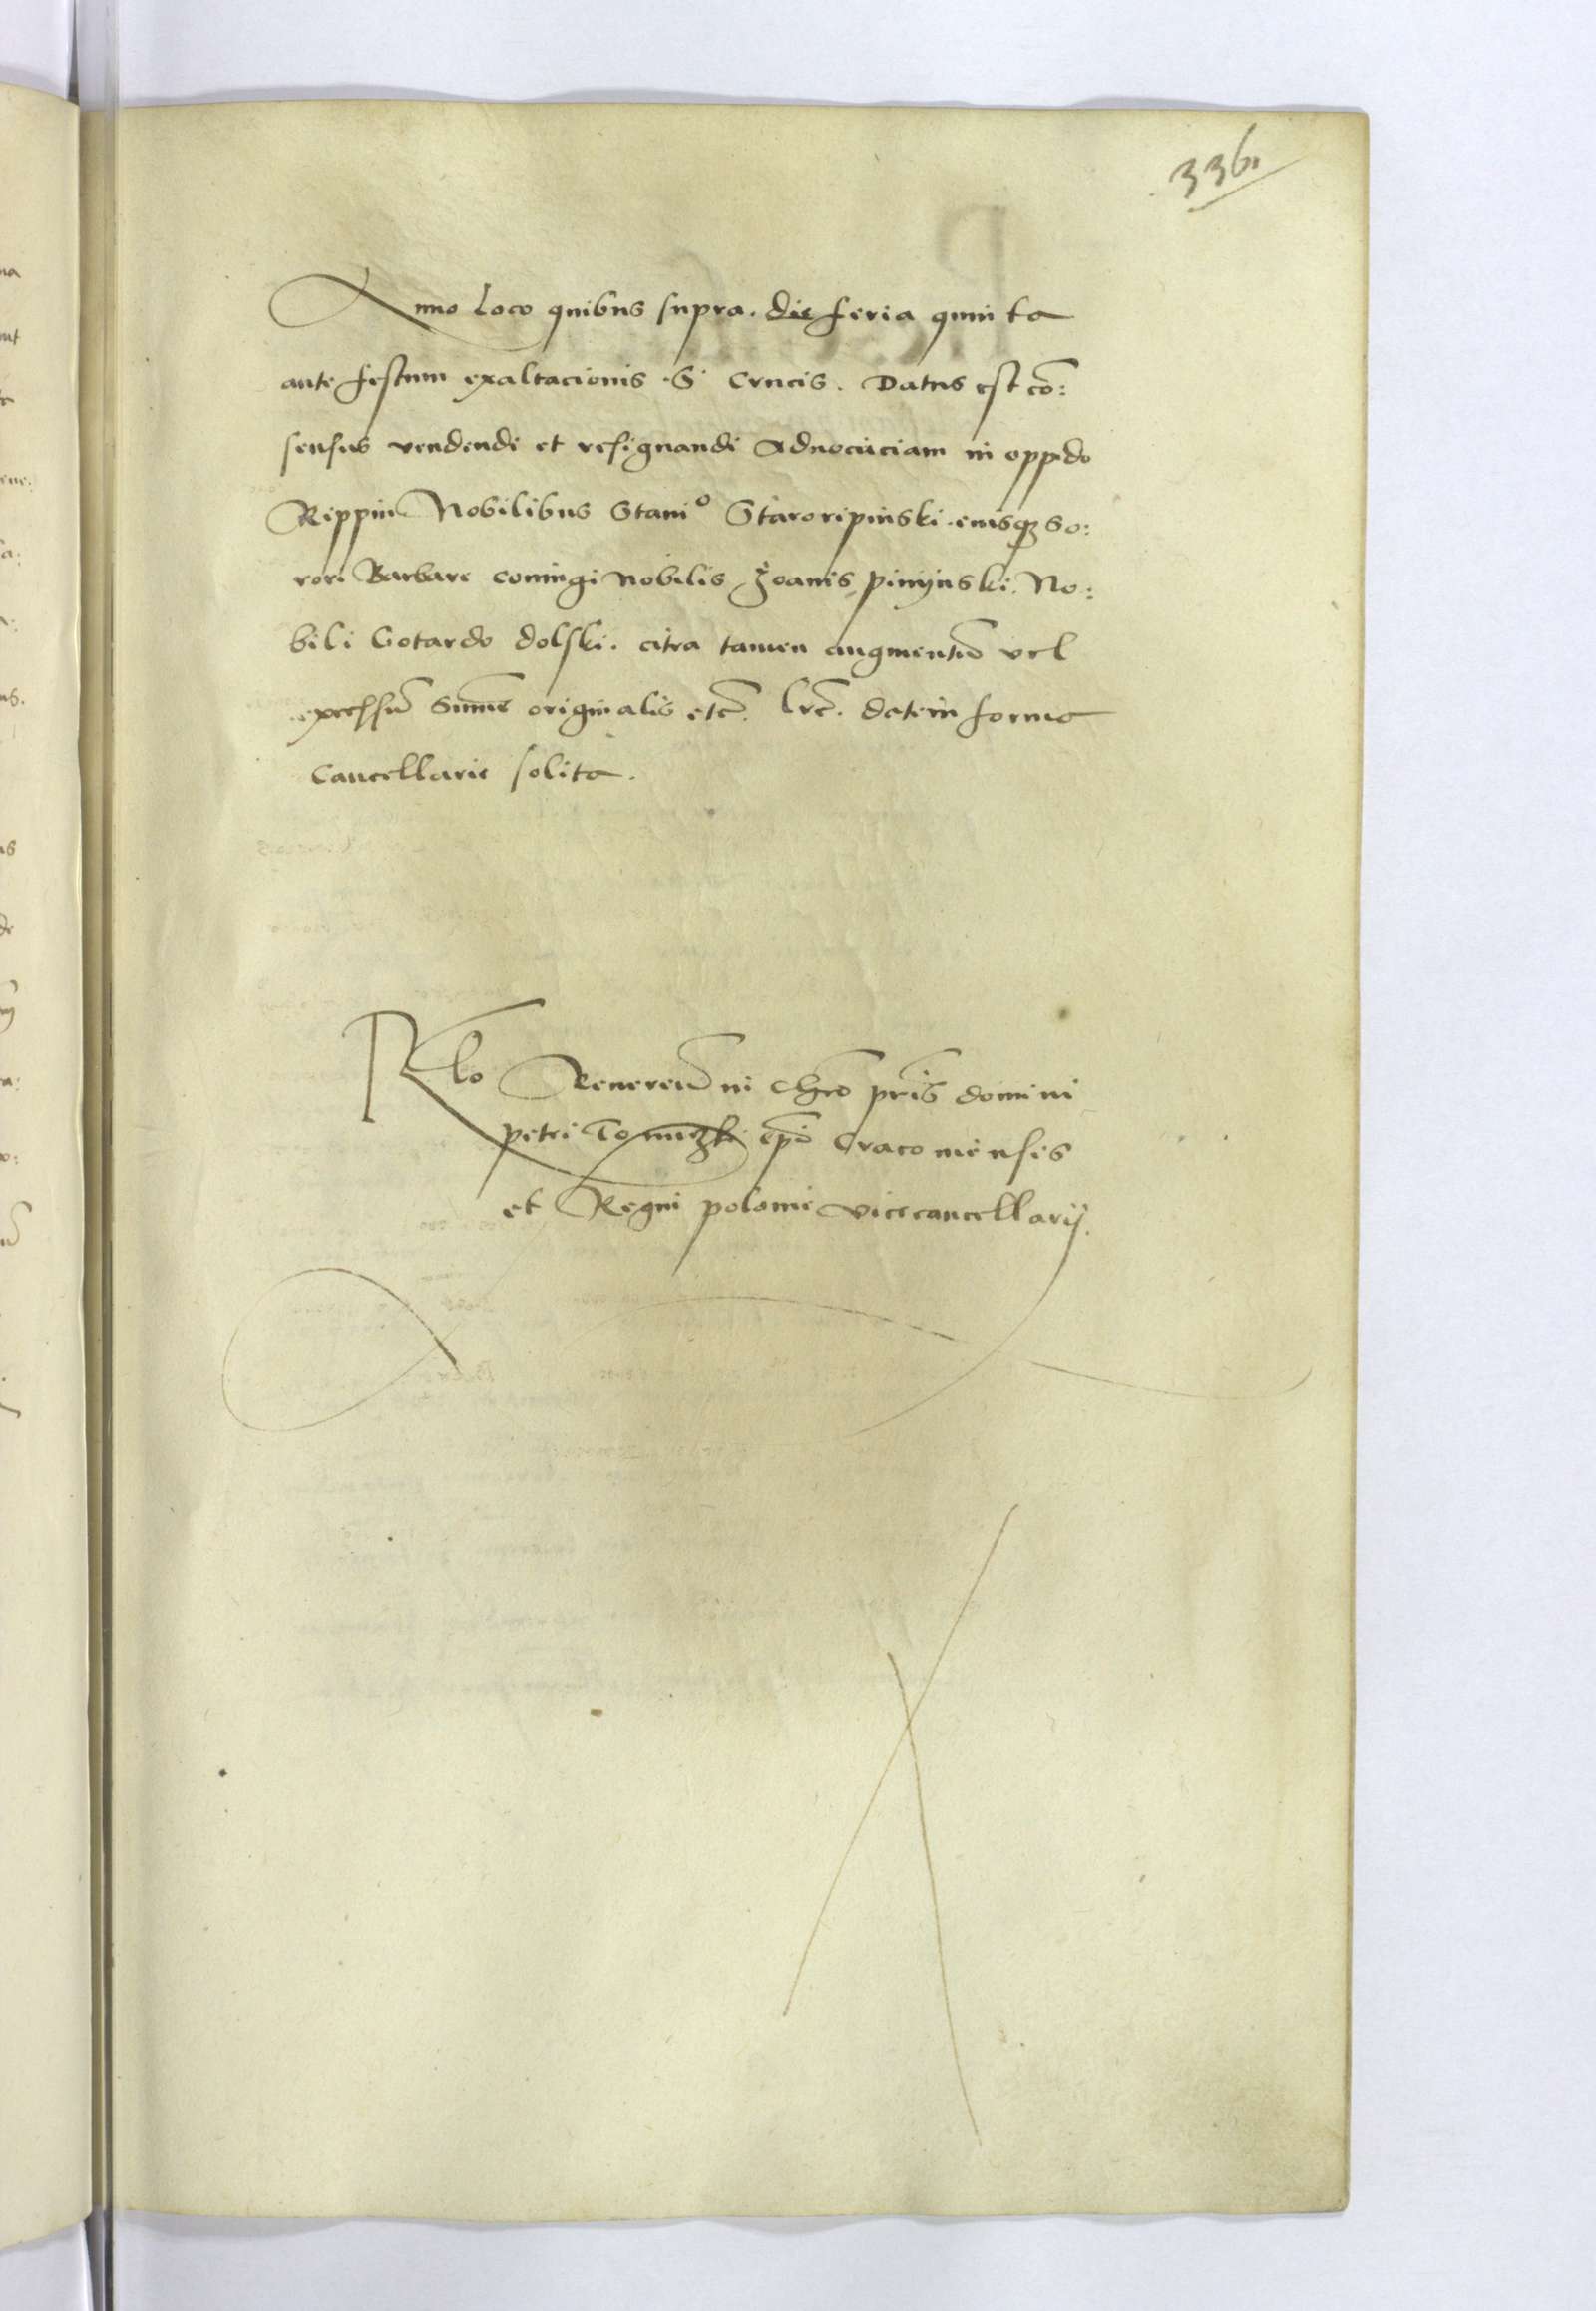 336
Anno loco quibus supra. die feria quinta
ante festum exaltacionis .S. Crucis. Datus est cō:
sensus vendendi et resignandi Aduocaciam in oppido
Rippin Nobilibus Staniº Staroripinski eiusqȝ so:
rori Barbare coniugi Nobilis Joanis pinijnski. No:
bili Gotardo dolski. citra tamen augmentū vel
excessū Summe originalis etc̄. Lrē. date in forma
Cancellarie solita.
Rlo Reueren̄ in chrō pris̄ domini
petri Tomiczki ep̄i Cracouiensis
et Regni polonie vicecancellarij.